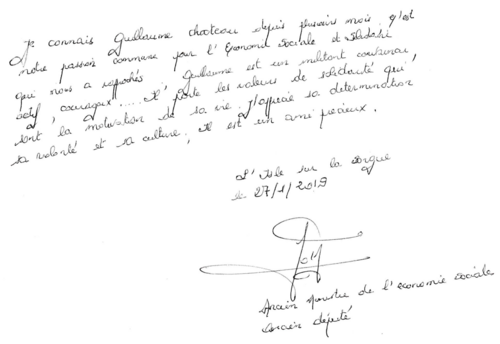 Je connais Guillaume chocteau depuis plusieurs mois, c'est
notre passion commune pour l'Economie Sociale et Solidaire
qui nous a rapprochés. Guillaume est un militant convaincu,
actif, courageux..... Il porte les valeurs de solidarité qui
sont la motivation de sa vie. J'apprécie sa détermination
sa volonté et sa culture, il est un ami précieux.
L'Isle sur la Sorgue
le 27/1/2019
Ancien Ministre de l'économie sociale
Ancien député